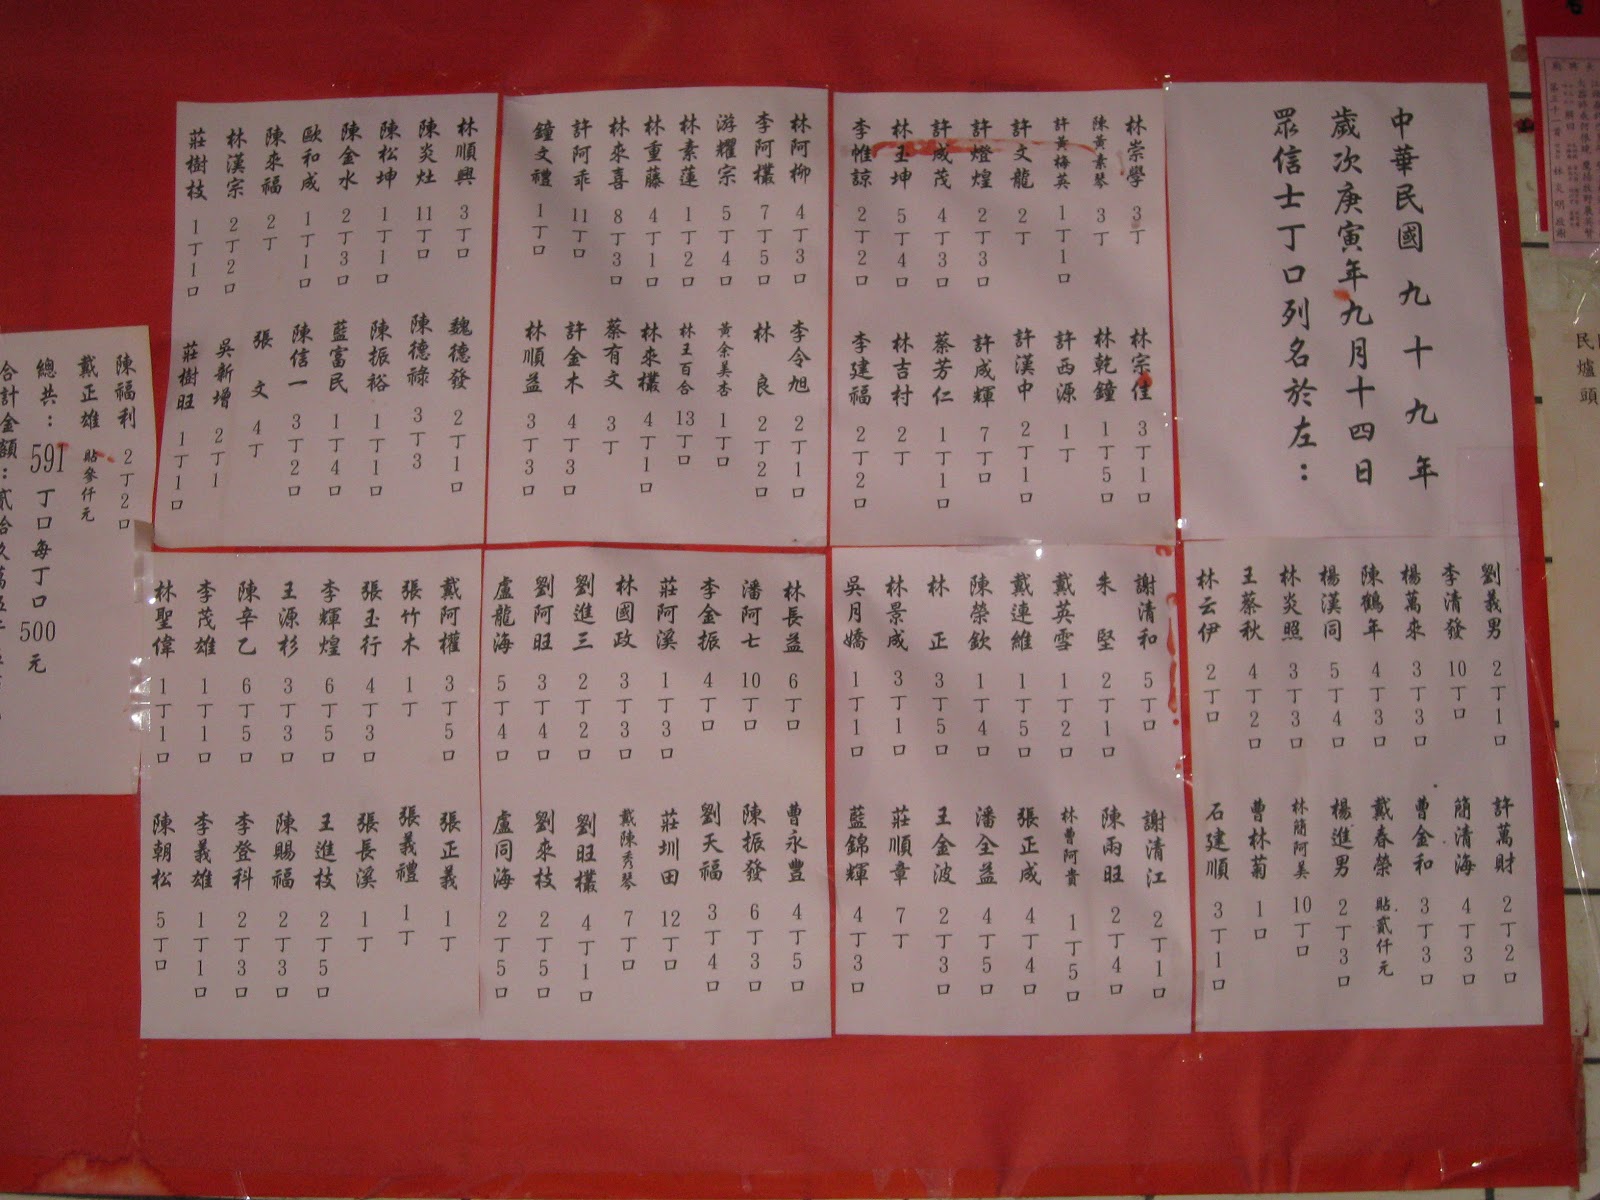 中華民國九十九年
歲次庚寅年九月十四日
眾信士丁口列名於左：
林崇學 3丁
陳黃素琴 3丁
許黃梅英 1丁1口
許文龍 2丁
許燈煌 2丁3口
許成茂 4丁3口
林玉坤 5丁4口
李惟諒 2丁2口
林宗佳 3丁1口
林乾鐘 1丁5口
許西源 1丁
許漢中 2丁1口
許成輝 7丁口
蔡芳仁 1丁1口
林吉村 2丁
李建福 2丁2口
林阿柳 4丁3口
李阿欉 7丁5口
游耀宗 5丁4口
林素蓮 1丁2口
林重藤 4丁1口
林來喜 8丁3口
許阿乖 11丁口
鐘文禮 1丁口
李令旭 2丁1口
林良 2丁2口
黃余美杏 1丁口
林王百合 13丁口
林來欉 4丁1口
蔡有文 3丁
許金木 4丁3口
林順益 3丁3口
林順興 3丁口
陳炎灶 11丁口
陳松坤 1丁1口
陳金水 2丁3口
歐和成 1丁1口
陳來福 2丁
林漢宗 2丁2口
莊樹枝 1丁1口
魏德發 2丁1口
陳德祿 3丁3
陳振裕 1丁1口
藍富民 1丁4口
陳信一 3丁2口
張文 4丁
吳新增 2丁1
莊樹旺 1丁1口
劉義男 2丁1口
李清發 10丁口
楊萬來 3丁3口
陳鶴年 4丁3口
楊漢同 5丁4口
林炎照 3丁3口
王蔡秋 4丁2口
林云伊 2丁口
許萬財 2丁2口
簡清海 4丁3口
曹金和 3丁3口
戴春榮 貼貳仟元
楊進男 2丁3口
林簡阿美 10丁口
曹林菊 1口
石建順 3丁1口
謝清和 5丁口
朱堅 2丁1口
戴英雪 1丁2口
戴連維 1丁5口
陳榮欽 1丁4口
林正 3丁5口
林景成 3丁1口
吳月嬌 1丁1口
謝清江 2丁1口
陳雨旺 2丁4口
林曹阿貴 1丁5口
張正成 4丁4口
潘全益 4丁5口
王金波 2丁3口
莊順章 7丁
藍錦輝 4丁3口
林長益 6丁口
潘阿七 10丁口
李金振 4丁口
莊阿溪 1丁3口
林國政 3丁3口
劉進三 2丁2口
劉阿旺 3丁4口
盧龍海 5丁4口
曹永豐 4丁5口
陳振發 6丁3口
劉天福 3丁4口
莊圳田 12丁口
戴陳秀琴 7丁口
劉旺欉 4丁1口
劉來枝 2丁5口
盧同海 2丁5口
戴阿權 3丁5口
張竹木 1丁
張玉行 4丁3口
李輝煌 6丁5口
王源杉 3丁3口
陳辛乙 6丁5口
李茂雄 1丁1口
林聖偉 1丁1口
張正義 1丁
張義禮 1丁
張長溪 1丁
王進枝 2丁5口
陳賜福 2丁3口
李登科 2丁3口
李義雄 1丁1口
陳朝松 5丁口
陳福利 2丁2口
戴正雄 貼參仟元
總共：591丁口每丁口500元
合計金額：貳拾玖萬伍
民爐頭